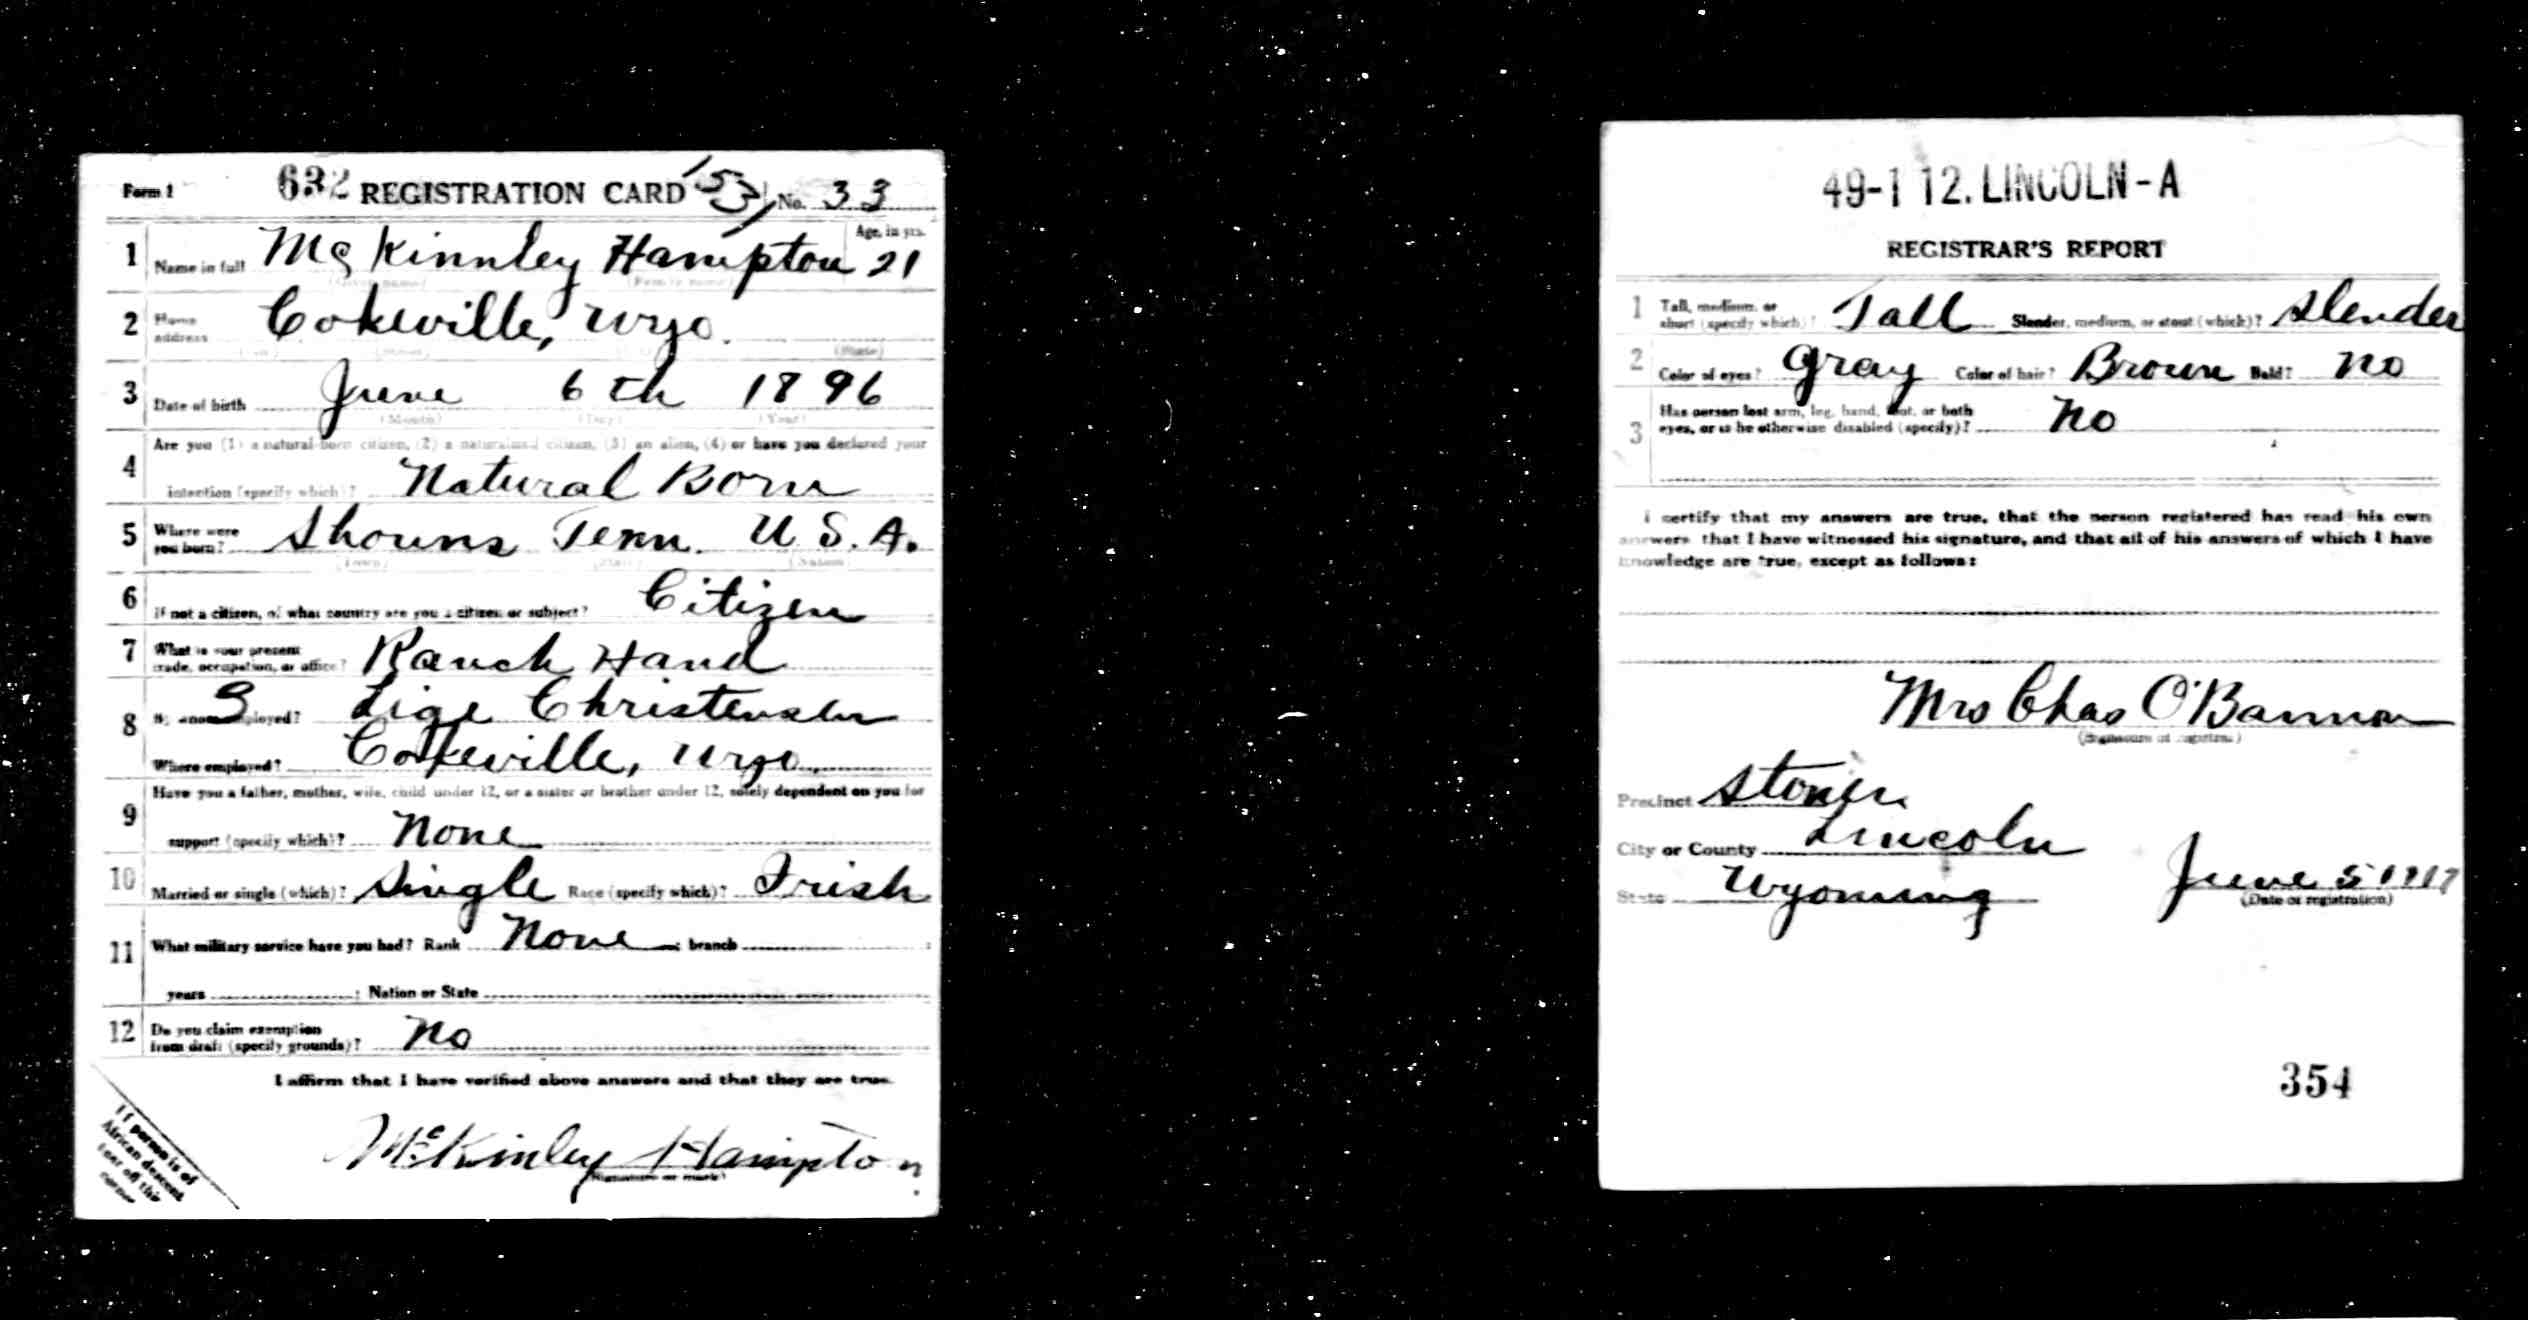 Form 1 632 REGISTRATION CARD 153 No. 33
1 Name in full McKinnley Hampton Age, in yrs. 21
(Given name) (Family name)
2 Home address Cokeville, Wyo.
(State)
3 Date of birth June 6th 1896
(Month) (Day) (Year)
4 Are you (1) a natural-born citizen, (2) a naturalized citizen, (3) an alien, (4) or have you declared your
intention (specify which)? Natural Born
5 Where were you born? Shouns Tenn. U.S.A.
(Town) (State) (Nation)
6 If not a citizen, of what country are you a citizen or subject? Citizen
7 What is your present trade, occupation, or office? Ranch Hand
8 By whom employed? Lige Christensen
Where employed? Cokeville, Wyo.
9 Have you a father, mother, wife, child under 12, or a sister or brother under 12, solely dependent on you for
support (specify which)? None
10 Married or single (which)? Single Race (specify which)? Irish
11 What military service have you had? Rank None ; branch ;
years ; Nation or State
12 Do you claim exemption from draft (specify grounds)? No
I affirm that I have verified above answers and that they are true.
McKinley Hampton
(Signature or mark)
If person is of
African descent
tear off this
corner
49-1 12. LINCOLN-A
REGISTRAR'S REPORT
1 Tall, medium, or short (specify which)? Tall Slender, medium, or stout (which)? Slender
2 Color of eyes? Gray Color of hair? Brown Bald? No
3 Has person lost arm, leg, hand, foot, or both
eyes, or is he otherwise disabled (specify)? No
I certify that my answers are true, that the person registered has read his own
answers that I have witnessed his signature, and that all of his answers of which I have
knowledge are true, except as follows:
Mrs Chas O'Bannon
(Signature of registrar)
Precinct Stoner
City or County Lincoln
State Wyoming June 5 1917
(Date of registration)
354